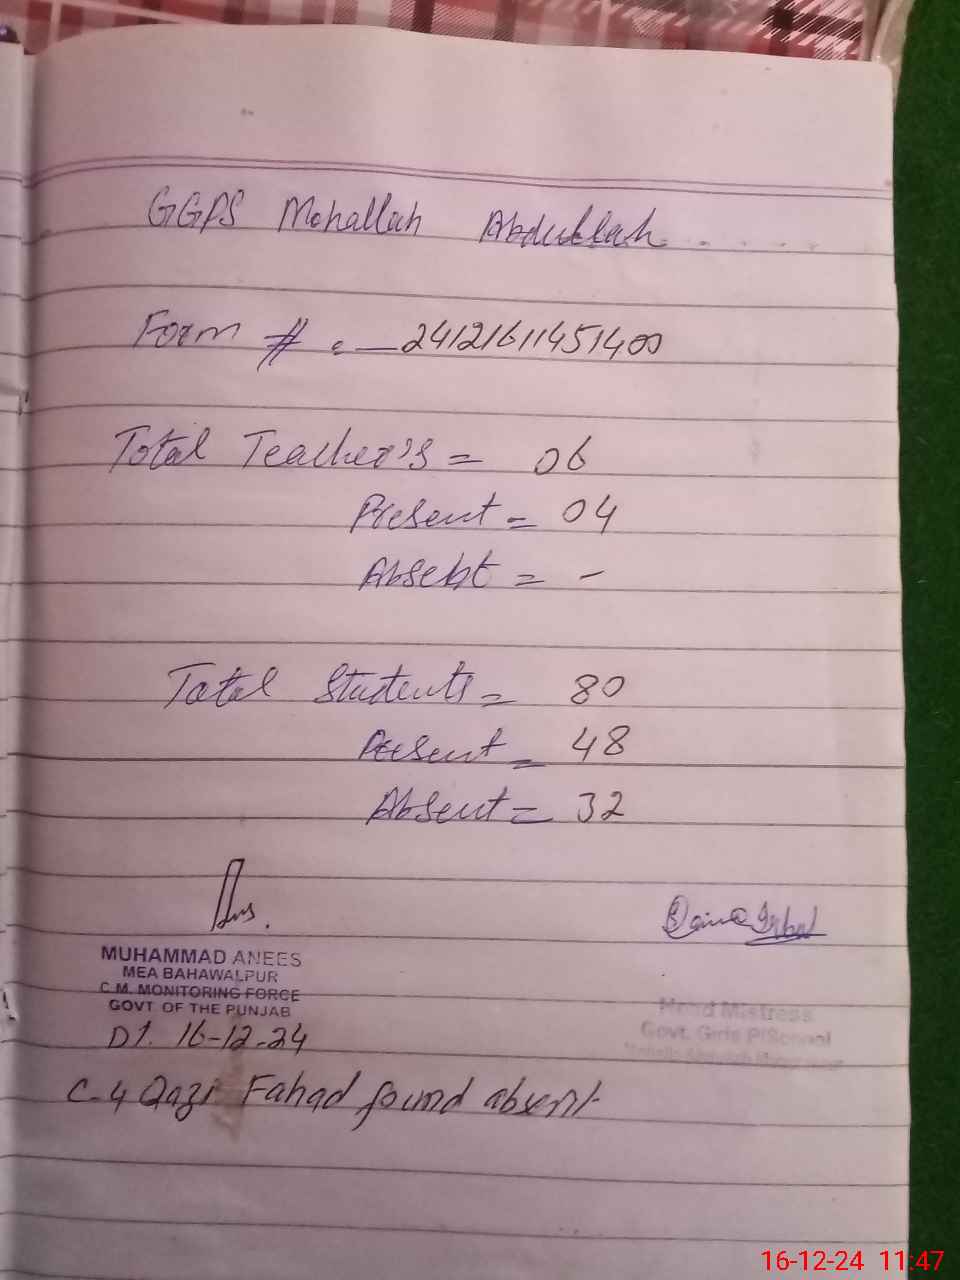 GGPS Mohallah Abdullah
Form # :- 24121611451400
Total Teacher's = 06
Present = 04
Absebt = -
Total Students = 80
Present = 48
Absent = 32
MUHAMMAD ANEES
MEA BAHAWALPUR
C.M. MONITORING FORCE
GOVT OF THE PUNJAB
DT. 16-12-24
Head Mistress
Govt. Girls P/School
C-4 Qazi Fahad found absent
16-12-24 11:47